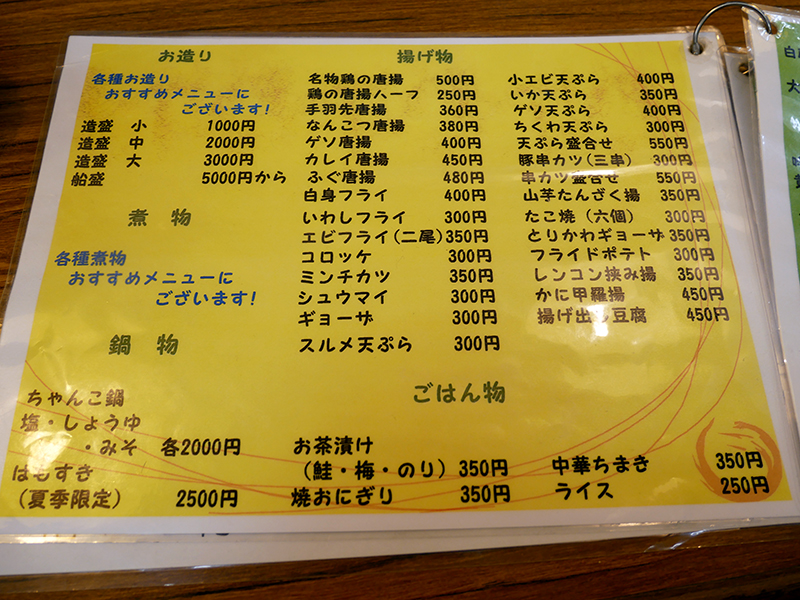 お造り
各種お造り
おすすめメニューに
ございます!
造盛 小 1000円
造盛 中 2000円
造盛 大 3000円
船盛 5000円から
煮物
各種煮物
おすすめメニューに
ございます!
鍋物
ちゃんこ鍋
塩・しょうゆ
・みそ 各2000円
はもすき
(夏季限定) 2500円
揚げ物
名物鶏の唐揚 500円
鶏の唐揚ハーフ 250円
手羽先唐揚 360円
なんこつ唐揚 380円
ゲソ唐揚 400円
カレイ唐揚 450円
ふぐ唐揚 480円
白身フライ 400円
いわしフライ 300円
エビフライ(二尾) 350円
コロッケ 300円
ミンチカツ 350円
シュウマイ 300円
ギョーザ 300円
スルメ天ぷら 300円
小エビ天ぷら 400円
いか天ぷら 350円
ゲソ天ぷら 400円
ちくわ天ぷら 300円
天ぷら盛合せ 550円
豚串カツ(三串) 300円
串カツ盛合せ 550円
山芋たんざく揚 350円
たこ焼(六個) 300円
とりかわギョーザ 350円
フライドポテト 300円
レンコン挟み揚 350円
かに甲羅揚 450円
揚げ出し豆腐 450円
ごはん物
お茶漬け
(鮭・梅・のり) 350円
焼おにぎり 350円
中華ちまき 350円
ライス 250円